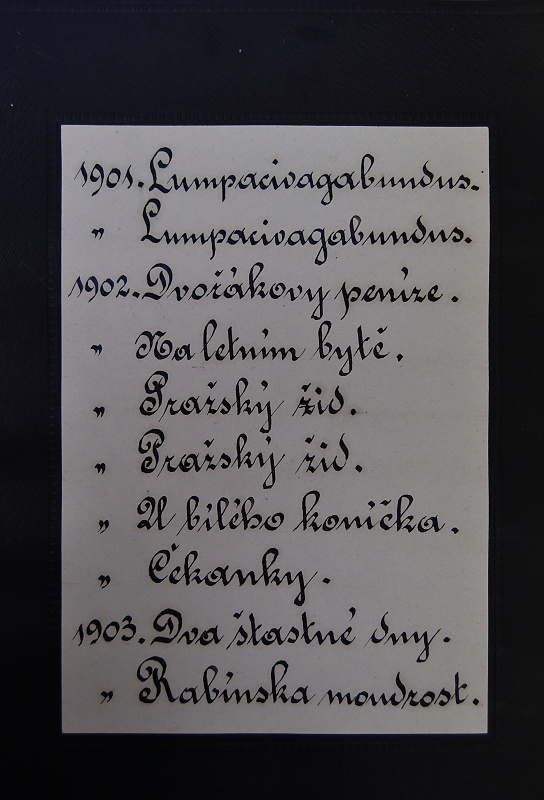 1901. Lumpacivagabundus.
„ Lumpacivagabundus.
1902. Dvořákovy peníze.
„ Na letním bytě.
„ Pražský žid.
„ Pražský žid.
„ U bílého koníčka.
„ Čekanky.
1903. Dva štastné dny.
„ Rabínska moudrost.